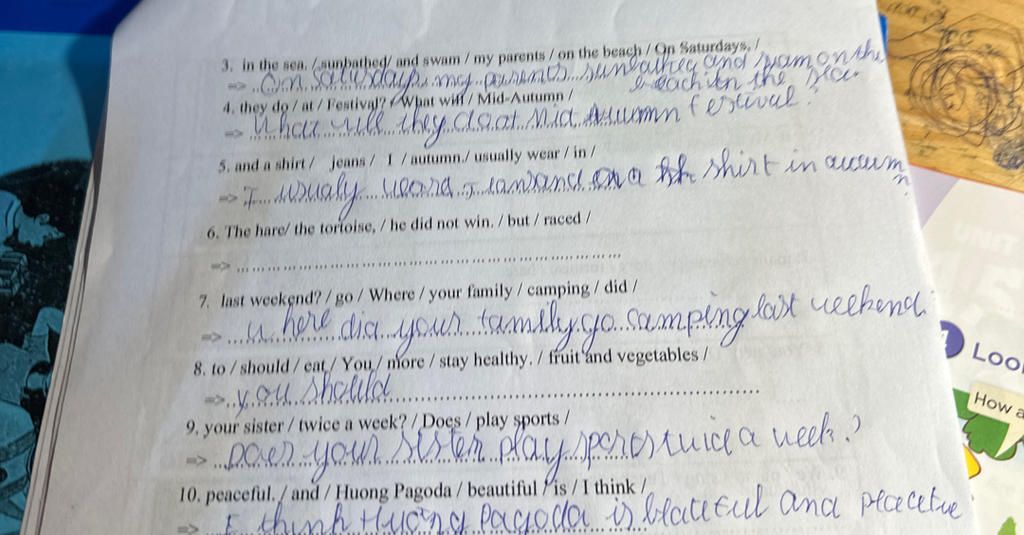 3. in the sea. / sunbathed/ and swam / my parents / on the beach / On Saturdays, /
=> On saturdays, my parents sunbathed and swam on the
beach in the sea
4. they do / at / Festival? / What will / Mid-Autumn /
=> What will they do at Mid Autumn festival?
5. and a shirt / jeans / I / autumn./ usually wear / in /
=> I usualy a shirt in autumn
6. The hare/ the tortoise, / he did not win. / but / raced /
=> ........................................
7. last weekend? / go / Where / your family / camping / did /
=> Where did your family go camping last weekend.
8. to / should / eat / You / more / stay healthy. / fruit and vegetables /
=> you should
9. your sister / twice a week? / Does / play sports /
=> Does your sister play sports twice a week?
10. peaceful. / and / Huong Pagoda / beautiful / is / I think /
=> I think Huong Pagoda is and
UNIT
Loo
How a